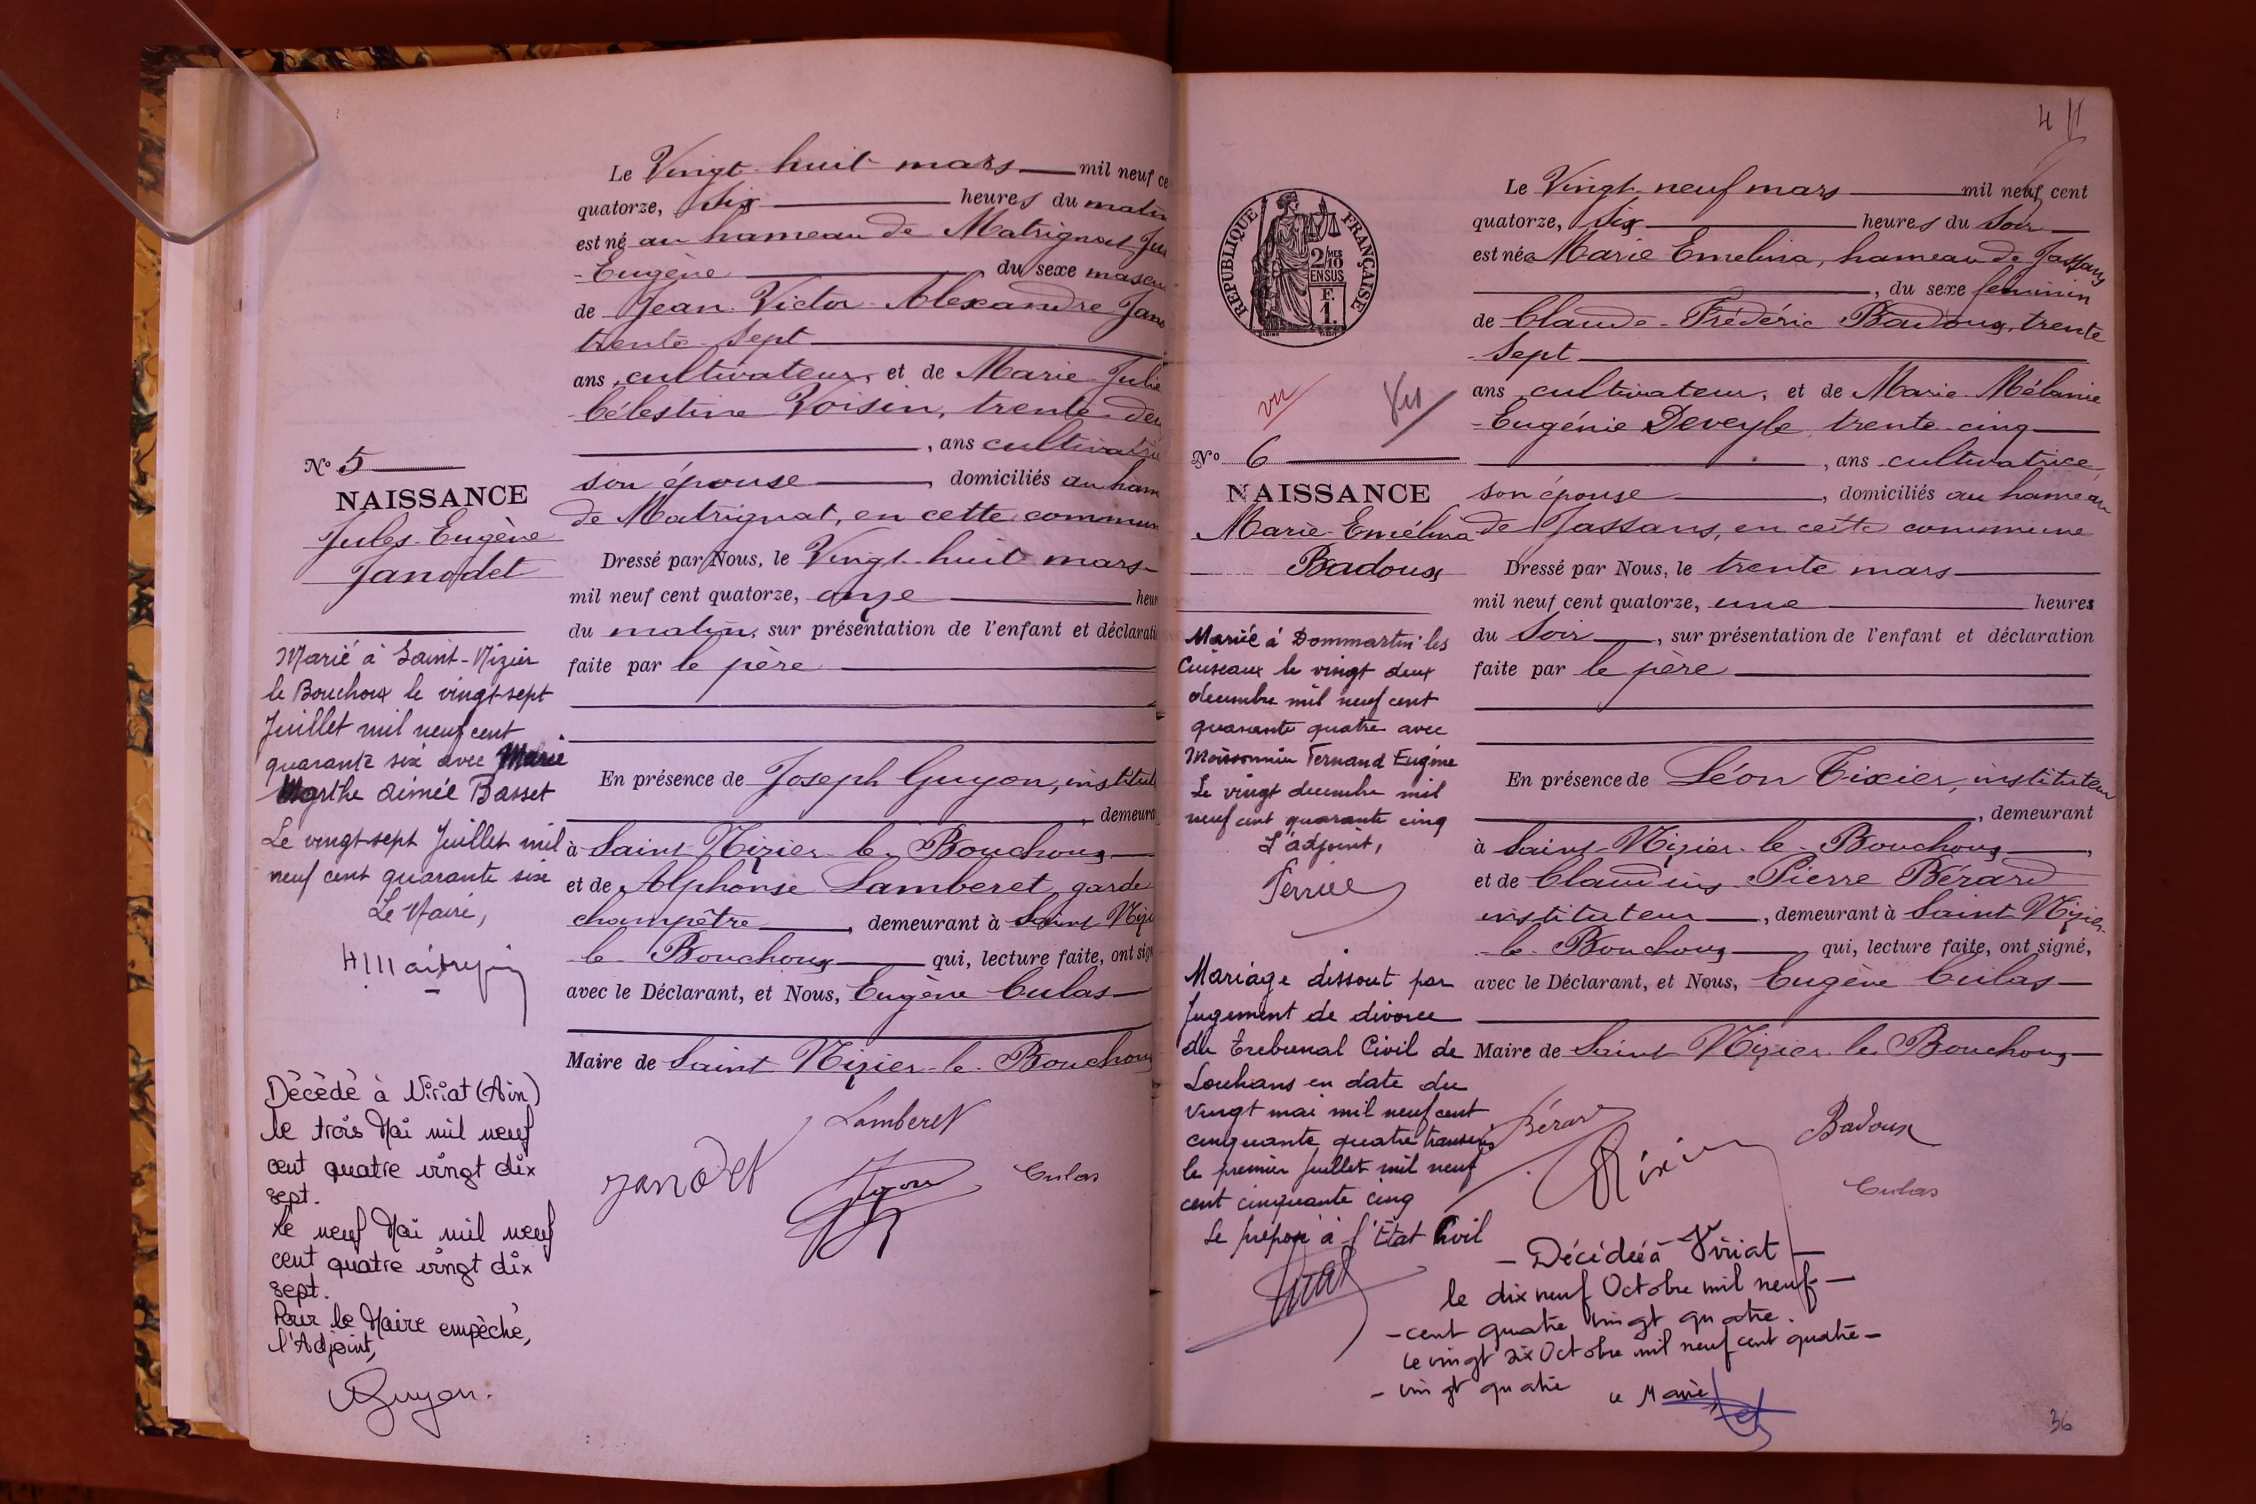 Le Vingt huit mars mil neuf ce
quatorze, six heures du matin
est né au hameau de Matrignat Jul
-Eugène du sexe mascu
de Jean Victor Alexandre Jano
trente-sept
ans cultivateur, et de Marie Julie
Célestine Voisin, trente-deu
, ans cultivatri
son épouse, domiciliés au ham
de Matrignat, en cette commun
Dressé par Nous, le Vingt-huit mars
mil neuf cent quatorze, onze heur
du matin, sur présentation de l'enfant et déclarati
faite par le père
En présence de Joseph Guyon, institut
, demeura
à Saint-Nizier-le-Bouchoux
et de Alphonse Lamberet, garde
champêtre, demeurant à Saint Nizi
le Bouchoux qui, lecture faite, ont sign
avec le Déclarant, et Nous, Eugène Culas
Maire de Saint Nizier-le-Bouchoux
Lamberet
Janodet
Guyon
Culas
No 5
NAISSANCE
Jules Eugène
Janodet
Marié à Saint-Nizier
le Bouchoux le vingt-sept
Juillet mil neuf cent
quarante six avec Marie
Marthe Aimée Basset
Le vingt-sept Juillet mil
neuf cent quarante six
Le Maire,
Décédé à Viriat (Ain)
le trois Mai mil neuf
cent quatre vingt dix
sept.
le neuf Mai mil neuf
cent quatre vingt dix
sept.
Pour le Maire empêché,
l'Adjoint,
Guyon.
4
REPUBLIQUE FRANÇAISE
2/10MES
EN SUS
F.
1.
Le Vingt-neuf mars mil neuf cent
quatorze, six heures du soir
est née Marie Emelina, hameau de Jassans
, du sexe féminin
de Claude-Frédéric Badoux, trente
-sept
ans cultivateur, et de Marie Mélanie
-Eugénie Deveyle, trente-cinq
, ans cultivatrice
son épouse, domiciliés au hameau
de Jassans, en cette commune
Dressé par Nous, le trente mars
mil neuf cent quatorze, une heures
du soir, sur présentation de l'enfant et déclaration
faite par le père
En présence de Léon Tixier, instituteur
, demeurant
à Saint-Nizier-le-Bouchoux,
et de Claudius Pierre Bérard
instituteur, demeurant à Saint Nizier-
-le-Bouchoux qui, lecture faite, ont signé,
avec le Déclarant, et Nous, Eugène Culas
Maire de Saint Nizier-le-Bouchoux
Bérard
Tixier
Badoux
Culas
vu
Vu
No 6
NAISSANCE
Marie-Emélina
Badoux
Mariée à Dommartin les
Cuiseaux le vingt deux
décembre mil neuf cent
quarante quatre avec
Moissonnier Fernand Eugène
Le vingt décembre mil
neuf cent quarante cinq
L'adjoint,
Mariage dissout par
Jugement de divorce
du Tribunal Civil de
Louhans en date du
vingt mai mil neuf cent
cinquante quatre transcris
le premier juillet mil neuf
cent cinquante cinq
Le préposé à l'Etat Civil
- Décédée à Viriat -
le dix neuf Octobre mil neuf -
- cent quatre vingt quatre.
le vingt six Octobre mil neuf cent quatre -
- vingt quatre le Maire
36